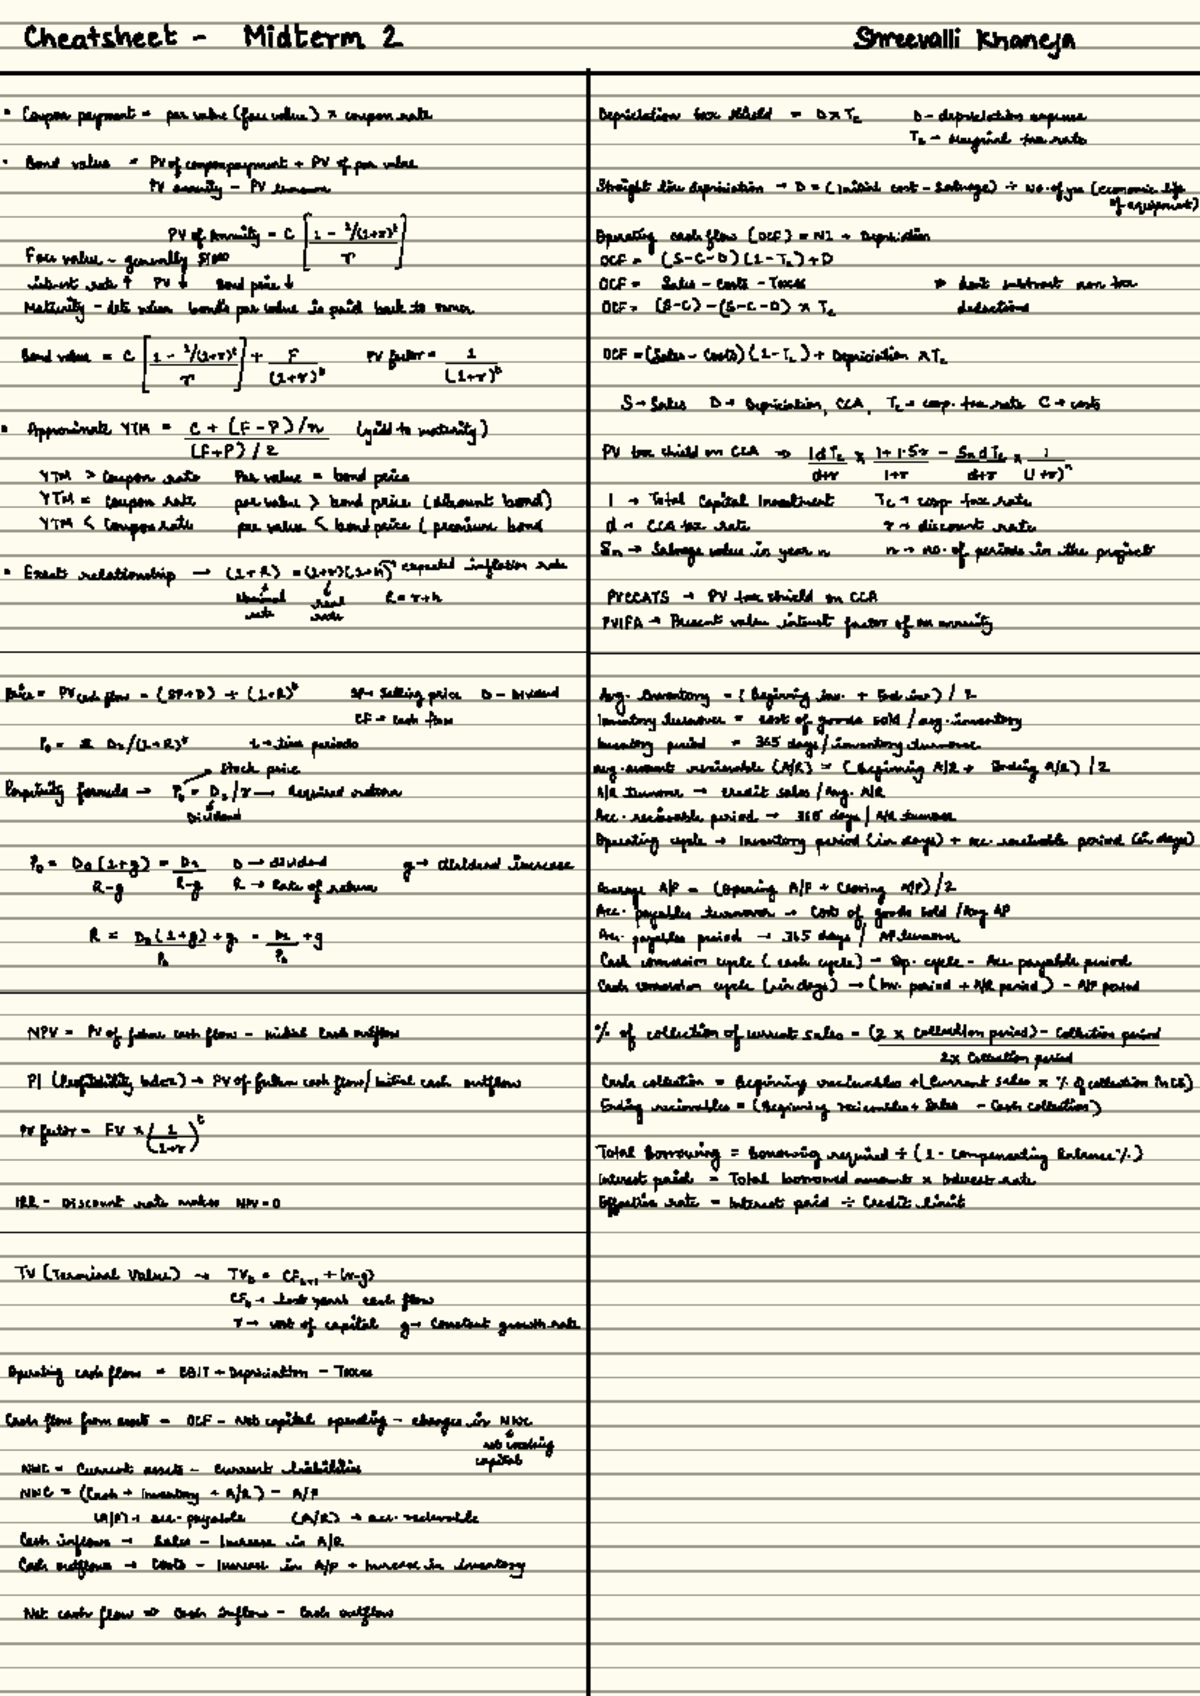 Cheatsheet - Midterm 2
Shreevalli Khaneja
• Coupon payment = par value (face value) x coupon rate
• Bond value = PV of coupon payment + PV of par value
PV annuity - PV lumpsum
PV of Annuity = C [ 1 - 1/(1+r)^t / r ]
Face value - generally $1000
interest rate ↑ PV ↓ Bond price ↓
Maturity - date when bond's par value is paid back to owner
Bond value = C [ 1 - 1/(1+r)^t / r ] + F / (1+r)^t PV factor = 1 / (1+r)^t
• Approximate YTM = C + (F-P)/n / (F+P)/2 (yield to maturity)
YTM > Coupon rate Par value = bond price
YTM = coupon rate par value > bond price (discount bond)
YTM < Coupon rate par value < bond price (premium bond
• Exact relationship → (1+R) = (1+r)(1+h) expected inflation rate
Nominal rate real rate R = r+h
Price = PV cash flow = (SP+D) ÷ (1+R)^t SP→ Selling price D - Dividend
CF → cash flow
P₀ = D₁/(1+R)^t t → time periods
Stock price
Perpetuity formula → P₀ = D₁/r → Required return
Dividend
P₀ = D₀(1+g) / R-g = D₁ / R-g D → dividend g → dividend increase
R → Rate of return
R = D₀(1+g) / P₀ + g = D₁ / P₀ + g
NPV = PV of future cash flow - initial cash outflow
PI (Profitability index) → PV of future cash flow/initial cash outflow
PV factor = FV x (1 / 1+r)^t
IRR - Discount rate makes NPV = 0
TV (Terminal Value) → TVₜ = CFₜ₊₁ ÷ (r-g)
CFₜ → last years cash flow
r → cost of capital g → Constant growth rate
Operating cash flow = EBIT + Depreciation - Taxes
Cash flow from assets = OCF - Net capital spending - changes in NWC
net working
capital
NWC = Current assets - Current liabilities
NWC = (Cash + Inventory + A/R) - A/P
(A/P) → acc. payable (A/R) → acc. receivable
Cash inflows → Sales - Increase in A/R
Cash outflows → Costs - Increase in A/P + Increase in inventory
Net cash flow ⇒ Cash inflow - Cash outflow
Depreciation tax shield = D x Tc D - depreciation expense
Tc → Marginal tax rate
Straight line depreciation → D = (Initial cost - Salvage) ÷ No. of yrs (economic life
of equipment)
Operating cash flow (OCF) = NI + Depriciation
OCF = (S-C-D)(1-Tc)+D
OCF = Sales - Costs - Taxes → dont subtract non tax
OCF = (S-C) - (S-C-D) x Tc deductions
OCF = (Sales - Costs)(1-Tc) + Depriciation x Tc
S → Sales D → Depriciation, CCA, Tc → corp. tax rate C → costs
PV tax shield on CCA ⇒ IdTc / d+r x 1+1.5r / 1+r - SndTc / d+r x 1 / (1+r)^n
I → Total Capital Investment Tc → corp. tax rate
d → CCA tax rate r → discount rate
Sn → Salvage value in year n n → no. of periods in the project
PVCCATS → PV tax shield on CCA
PVIFA → Present value interest factor of an annuity
Avg. Inventory = (Beginning inv. + End inv) / 2
Inventory turnover = cost of goods sold / avg. inventory
Inventory period = 365 days/inventory turnover
avg. account receivable (A/R) = (Beginning A/R + Ending A/R) / 2
A/R turnover → credit sales / Avg. A/R
Acc. recievable period → 365 days / A/R turnover
Operating cycle → Inventory period (in days) + acc. receivable period (in days)
Average A/P = (Opening A/P + Closing A/P) / 2
Acc. payables turnover → Costs of goods sold / Avg AP
Acc. payables period → 365 days / AP turnover
Cash conversion cycle (cash cycle) - Op. cycle - Acc payable period
Cash conversion cycle (in days) → (Inv. period + A/R period) - A/P period
% of collection of current sales = (2 x Collection period) - Collection period
2x Collection period
Cash collection = Beginning receivables + (Current sales x % of collection in CS)
Ending recievables = (Beginning recievables + Sales - Cash collection)
Total Borrowing = borrowing required ÷ (1 - compensating balance%)
Interest paid = Total borrowed amount x interest rate
Effective rate = Interest paid ÷ Credit limit